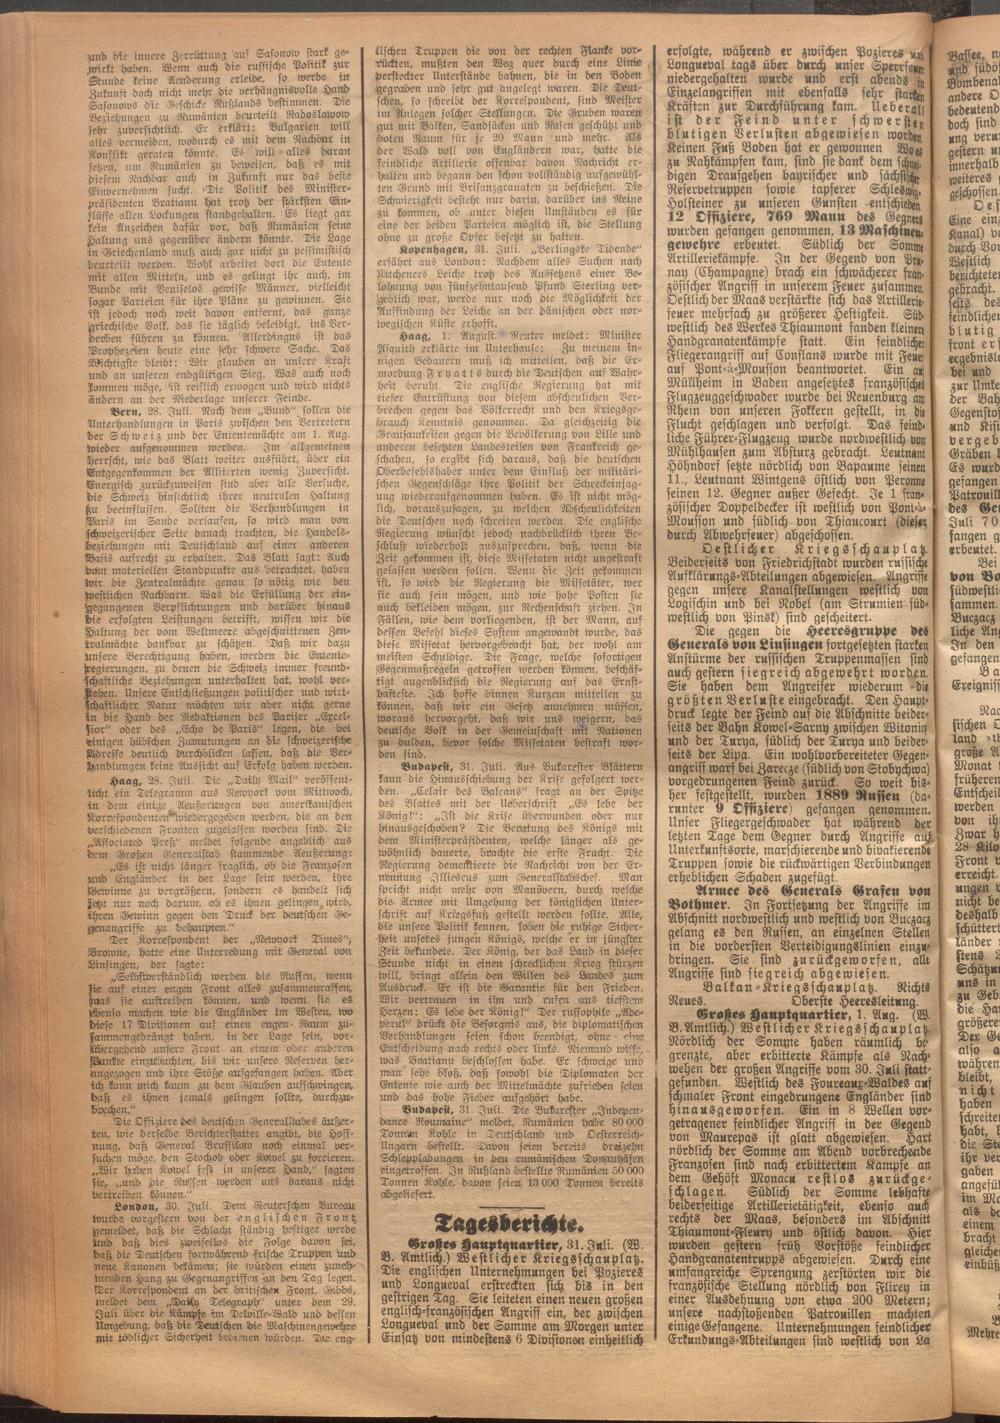 und die innere Zerrüttung auf Sasonow stark ge-
wirkt haben. Wenn auch die russische Politik zur
Stunde keine Aenderung erleide, so werde in
Zukunft doch nicht mehr die verhängnisvolle Hand
Sasonows die Geschicke Rußlands bestimmen. Die
Beziehungen zu Rumänien beurteilt Radoslawow
sehr zuversichtlich. Er erklärt: Bulgarien will
alles vermeiden, wodurch es mit dem Nachbar in
Konflikt geraten könnte. Es will alles daran
setzen, um Rumänien zu beweisen, daß es mit
diesem Nachbar auch in Zukunft nur das beste
Einvernehmen sucht. Die Politik des Minister-
präsidenten Bratianu hat trotz der stärksten Ein-
flüsse allen Lockungen standgehalten. Es liegt gar
kein Anzeichen dafür vor, daß Rumänien seine
Haltung uns gegenüber ändern könnte. Die Lage
in Griechenland muß auch gar nicht zu pessimistisch
beurteilt werden. Wohl arbeitet dort die Entente
mit allen Mitteln, und es gelingt ihr auch, im
Bunde mit Veniselos gewisse Männer, vielleicht
sogar Parteien für ihre Pläne zu gewinnen. Sie
ist jedoch noch weit davon entfernt, das ganze
griechische Volk, das sie täglich beleidigt, ins Ver-
derben führen zu können. Allerdings ist das
Prophezeien heute eine sehr schwere Sache. Das
Wichtigste bleibt: Wir glauben an unsere Kraft
und an unseren endgültigen Sieg. Was auch noch
kommen möge, ist reiflich erwogen und wird nichts
ändern an der Niederlage unserer Feinde.
Bern, 28. Juli. Nach dem „Bund" sollen die
Unterhandlungen in Paris zwischen den Vertretern
der Schweiz und der Ententemächte am 1. Aug.
wieder aufgenommen werden. Im allgemeinen
herrscht, wie das Blatt weiter ausführt, über ein
Entgegenkommen der Alliierten wenig Zuversicht.
Energisch zurückzuweisen sind aber alle Versuche,
die Schweiz hinsichtlich ihrer neutralen Haltung
zu beeinflussen. Sollten die Verhandlungen in
Paris im Sande verlaufen, so wird man von
schweizerischer Seite danach trachten, die Handels-
beziehungen mit Deutschland auf einer anderen
Basis aufrecht zu erhalten. Das Blatt sagt: Auch
vom materiellen Standpunkte aus betrachtet, haben
wir die Zentralmächte genau so nötig wie den
westlichen Nachbarn. Was die Erfüllung der ein-
gegangenen Verpflichtungen und darüber hinaus
die erfolgten Leistungen betrifft, wissen wir die
Haltung der vom Weltmeere abgeschnittenen Zen-
tralmächte dankbar zu schätzen. Daß wir dazu
unsere Berechtigung haben, werden die Entente-
regierungen, denen die Schweiz immer freund-
schaftliche Beziehungen unterhalten hat, wohl ver-
stehen. Unsere Entschließungen politischer und wirt-
schaftlicher Natur möchten wir aber nicht gerne
in die Hand der Redaktionen des Pariser „Excel-
sior" oder des „Echo de Paris" legen, die bei
einigen hübschen Zumutungen an die schweizerische
Adresse deutlich durchblicken lassen, daß die Ver-
handlungen keine Aussicht auf Erfolg haben werden.
Haag, 28. Juli. Die „Daily Mail" veröffent-
licht ein Telegramm aus Newyork vom Mittwoch,
in dem einige Aeußerungen von amerikanischen
Korrespondenten wiedergegeben werden, die an den
verschiedenen Fronten zugelassen worden sind. Die
„Associated Preß" meldet folgende angeblich aus
dem Großen Generalstab stammende Aeußerung:
„Es ist nicht länger fraglich, ob die Franzosen
und Engländer in der Lage sein werden, ihre
Gewinne zu vergrößern, sondern es handelt sich
jetzt nur noch darum, ob es ihnen gelingen wird,
ihren Gewinn gegen den Druck der deutschen Ge-
genangriffe zu behaupten."
Der Korrespondent der „Newyork Times",
Browne, hatte eine Unterredung mit General von
Linsingen, der sagte:
„Selbstverständlich werden die Russen, wenn
sie auf einer engen Front alles zusammenraffen,
was sie auftreiben können, und wenn sie es
ebenso machen wie die Engländer im Westen, wo
diese 17 Divisionen auf einen engen Raum zu-
sammengedrängt haben, in der Lage sein, vor-
übergehend unsere Front an einem oder anderen
Punkte einzudrücken, bis wir unsere Reserven her-
angezogen und ihre Stöße aufgefangen haben. Aber
ich kann mich kaum zu dem Glauben aufschwingen,
daß es ihnen jemals gelingen sollte, durchzu-
brechen."
Die Offiziere des deutschen Generalstabes äußer-
ten, wie derselbe Berichterstatter angibt, die Hoff-
nung, daß General Brussilow noch einmal ver-
suchen möge, den Stochod oder Kowel zu forcieren.
„Wir haben Kowel fest in unserer Hand," sagten
sie, „und die Russen werden uns daraus nicht
vertreiben können."
London, 30. Juli. Dem Reuterschen Bureau
wurde vorgestern von der englischen Front
gemeldet, daß die Schlacht ständig heftiger werde
und daß dies zweifellos die Folge davon sei,
daß die Deutschen fortwährend frische Truppen und
neue Kanonen bekämen; sie würden einen zuneh-
menden Hang zu Gegenangriffen an den Tag legen.
Der Korrespondent an der britischen Front, Gibbs,
meldet dem „Daily Telegraph" unter dem 29.
Juli über die Kämpfe im Delville-Wald und dessen
Umgebung, daß die Deutschen die Maschinengewehre
mit tödlicher Sicherheit bedienen würden. Die eng-
lischen Truppen die von der rechten Flanke vor-
rückten, mußten den Weg quer durch eine Linie
versteckter Unterstände bahnen, die in den Boden
gegraben und sehr gut angelegt waren. Die Deut-
schen, so schreibt der Korrespondent, sind Meister
im Anlegen solcher Stellungen. Die Gruben waren
gut mit Balken, Sandsäcken und Rasen geschützt und
boten Raum für je 20 Mann und mehr. Als
der Wald voll von Engländern war, hatte die
feindliche Artillerie offenbar davon Nachricht er-
halten und begann den schon vollständig aufgewühl-
ten Grund mit Brisanzgranaten zu beschießen. Die
Schwierigkeit besteht nur darin, darüber ins Reine
zu kommen, ob unter diesen Umständen es für
eine der beiden Parteien möglich ist, die Stellung
ohne zu große Opfer besetzt zu halten.
Kopenhagen, 31. Juli. „Berlingske Tidende"
erfährt aus London: Nachdem alles Suchen nach
Kitcheners Leiche trotz des Aussetzens einer Be-
lohnung von fünfzehntausend Pfund Sterling ver-
geblich war, werde nur noch die Möglichkeit der
Auffindung der Leiche an der dänischen oder nor-
wegischen Küste erhofft.
Haag, 1. August. Reuter meldet: Minister
Asquith erklärte im Unterhause: Zu meinem in-
nigen Bedauern muß ich mitteilen, daß die Er-
mordung Fryatts durch die Deutschen auf Wahr-
heit beruht. Die englische Regierung hat mit
tiefster Entrüstung von diesem abscheulichen Ver-
brechen gegen das Völkerrecht und den Kriegsge-
brauch Kenntnis genommen. Da gleichzeitig die
Grausamkeiten gegen die Bevölkerung von Lille und
anderen besetzten Landesteilen von Frankreich ge-
schahen, so ergibt sich daraus, daß die deutschen
Oberbefehlshaber unter dem Einfluß der militäri-
schen Gegenschläge ihre Politik der Schreckeinjag-
ung wiederaufgenommen haben. Es ist nicht mög-
lich, vorauszusagen, zu welchen Abscheulichkeiten
die Deutschen noch schreiten werden. Die englische
Regierung wünscht jedoch nachdrücklich ihren Be-
schluß wiederholt auszusprechen, daß, wenn die
Zeit gekommen ist, diese Missetaten nicht ungestraft
gelassen werden sollen. Wenn die Zeit gekommen
ist, so wird die Regierung die Missetäter, wer
sie auch sein mögen, und wie hohe Posten sie
auch bekleiden mögen, zur Rechenschaft ziehen. In
Fällen, wie dem vorliegenden, ist der Mann, auf
dessen Befehl dieses System angewandt wurde, das
diese Missetat hervorgebracht hat, der wohl am
meisten Schuldige. Die Frage, welche sofortigen
Gegenmaßregeln getroffen werden können, beschäf-
tigt augenblicklich die Regierung auf das Ernst-
hafteste. Ich hoffe binnen Kurzem mitteilen zu
können, daß wir ein Gesetz annehmen müssen,
woraus hervorgeht, daß wir uns weigern, das
deutsche Volk in der Gemeinschaft mit Nationen
zu dulden, bevor solche Missetaten bestraft wor-
den sind.
Budapest, 31. Juli. Aus Bukarester Blättern
kann die Hinausschiebung der Krise gefolgert wer-
den. „Eclair des Balcans" fragt an der Spitze
des Blattes mit der Ueberschrift „Es lebe der
König!": „Ist die Krise überwunden oder nur
hinausgeschoben? Die Beratung des Königs mit
dem Ministerpräsidenten, welche länger als ge-
wöhnlich dauerte, brachte die erste Frucht. Die
Regierung dementierte die Nachricht von der Er-
nennung Illiescus zum Generalstabschef. Man
spricht nicht mehr von Manövern, durch welche
die Armee mit Umgehung der königlichen Unter-
schrift auf Kriegsfuß gestellt werden sollte. Alle,
die unsere Politik kennen, loben die ruhige Sicher-
heit unseres jungen Königs, welche er in jüngster
Zeit bekundete. Der König, der das Land in dieser
Stunde nicht in einen schrecklichen Krieg stürzen
will, bringt allein den Willen des Landes zum
Ausdruck. Er ist die Garantie für den Frieden.
Wir vertrauen in ihn und rufen aus tiefstem
Herzen: Es lebe der König!" Der russophile „Ade-
verul" drückt die Besorgnis aus, die diplomatischen
Verhandlungen seien schon beendigt, ohne eine
Entscheidung nach rechts oder links. Niemand wisse,
was Bratianu beschlossen habe. Er schweige und
man sehe bloß, daß sowohl die Diplomaten der
Entente wie auch der Mittelmächte zufrieden seien
und das hohe Fieber aufgehört habe.
Budapest, 31. Juli. Die Bukarester „Indepen-
dance Roumaine" meldet, Rumänien habe 80 000
Tonnen Kohle in Deutschland und Oesterreich-
Ungarn bestellt. Davon seien bereits dreizehn
Schleppladungen in den rumänischen Donauhäfen
eingetroffen. In Rußland bestellte Rumänien 50 000
Tonnen Kohle, davon seien 13 000 Tonnen bereits
abgeliefert.
Tagesberichte.
Großes Hauptquartier, 31. Juli. (W.
B. Amtlich.) Westlicher Kriegsschauplatz.
Die englischen Unternehmungen bei Pozieres
und Longueval erstreckten sich bis in den
gestrigen Tag. Sie leiteten einen neuen großen
englisch-französischen Angriff ein, der zwischen
Longueval und der Somme am Morgen unter
Einsatz von mindestens 6 Divisionen einheitlich
erfolgte, während er zwischen Pozieres und
Longueval tags über durch unser Sperrfeuer
niedergehalten wurde und erst abends in
Einzelangriffen mit ebenfalls sehr starken
Kräften zur Durchführung kam. Ueberall
ist der Feind unter schwersten
blutigen Verlusten abgewiesen worden.
Keinen Fuß Boden hat er gewonnen. Wo es
zu Nahkämpfen kam, sind sie dank dem schnei-
digen Draufgehen bayrischer und sächsischer
Reservetruppen sowie tapferer Schleswig-
Holsteiner zu unseren Gunsten entschieden.
12 Offiziere, 769 Mann des Gegners
wurden gefangen genommen, 13 Maschinen-
gewehre erbeutet. Südlich der Somme
Artilleriekämpfe. In der Gegend von Pru-
nay (Champagne) brach ein schwächerer fran-
zösischer Angriff in unserem Feuer zusammen.
Oestlich der Maas verstärkte sich das Artillerie-
feuer mehrfach zu größerer Heftigkeit. Süd-
westlich des Werkes Thiaumont fanden kleinere
Handgranatenkämpfe statt. Ein feindlicher
Fliegerangriff auf Conflans wurde mit Feuer
auf Pont-à-Mousson beantwortet. Ein auf
Müllheim in Baden angesetztes französisches
Flugzeuggeschwader wurde bei Neuenburg am
Rhein von unseren Fokkern gestellt, in die
Flucht geschlagen und verfolgt. Das feind-
liche Führer-Flugzeug wurde nordwestlich von
Mühlhausen zum Absturz gebracht. Leutnant
Höhndorf setzte nördlich von Bapaume seinen
11., Leutnant Wintgens östlich von Peronne
seinen 12. Gegner außer Gefecht. Je 1 fran-
zösischer Doppeldecker ist westlich von Pont-à-
Mousson und südlich von Thiaucourt (dieser
durch Abwehrfeuer) abgeschossen.
Oestlicher Kriegsschauplatz.
Beiderseits von Friedrichstadt wurden russische
Aufklärungs-Abteilungen abgewiesen. Angriffe
gegen unsere Kanalstellungen westlich von
Logischin und bei Nobel (am Strumien süd-
westlich von Pinsk) sind gescheitert.
Die gegen die Heeresgruppe des
Generals von Linsingen fortgesetzten starken
Anstürme der russischen Truppenmassen sind
auch gestern siegreich abgewehrt worden.
Sie haben dem Angreifer wiederum die
größten Verluste eingebracht. Den Haupt-
druck legte der Feind auf die Abschnitte beider-
seits der Bahn Kowel-Sarny zwischen Witoniez
und der Turya, südlich der Turya und beider-
seits der Lipa. Ein wohlvorbereiteter Gegen-
angriff warf bei Zarecze (südlich von Stobychwa)
vorgedrungenen Feind zurück. So weit bis-
her festgestellt, wurden 1889 Russen (da-
runter 9 Offiziere) gefangen genommen.
Unser Fliegergeschwader hat während der
letzten Tage dem Gegner durch Angriffe auf
Unterkunftsorte, marschierende und bivakierende
Truppen sowie die rückwärtigen Verbindungen
erheblichen Schaden zugefügt.
Armee des Generals Grafen von
Bothmer. In Fortsetzung der Angriffe im
Abschnitt nordwestlich und westlich von Buczacz
gelang es den Russen, an einzelnen Stellen
in die vordersten Verteidigungslinien einzu-
dringen. Sie sind zurückgeworfen, alle
Angriffe sind siegreich abgewiesen.
Balkan-Kriegsschauplatz. Nichts
Neues. Oberste Heeresleitung.
Großes Hauptquartier, 1. Aug. (W.
B. Amtlich.) Westlicher Kriegsschauplatz
Nördlich der Somme haben räumlich be-
grenzte, aber erbitterte Kämpfe als Nach-
wehen der großen Angriffe vom 30. Juli statt-
gefunden. Westlich des Foureaux-Waldes auf
schmaler Front eingedrungene Engländer sind
hinausgeworfen. Ein in 8 Wellen vor-
getragener feindlicher Angriff in der Gegend
von Maurepas ist glatt abgewiesen. Hart
nördlich der Somme am Abend vorbrechende
Franzosen sind nach erbittertem Kampfe an
dem Gehöft Monacu restlos zurückge-
schlagen. Südlich der Somme lebhafte
beiderseitige Artillerietätigkeit, ebenso auch
rechts der Maas, besonders im Abschnitt
Thiaumont-Fleury und östlich davon. Hier
wurden gestern früh Vorstöße feindlicher
Handgranatentrupps abgewiesen. Durch eine
umfangreiche Sprengung zerstörten wir die
französische Stellung nördlich von Flirey in
einer Ausdehnung von etwa 200 Metern;
unsere nachstoßenden Patrouillen machten
einige Gefangene. Unternehmungen feindlicher
Erkundungs-Abteilungen sind westlich von La